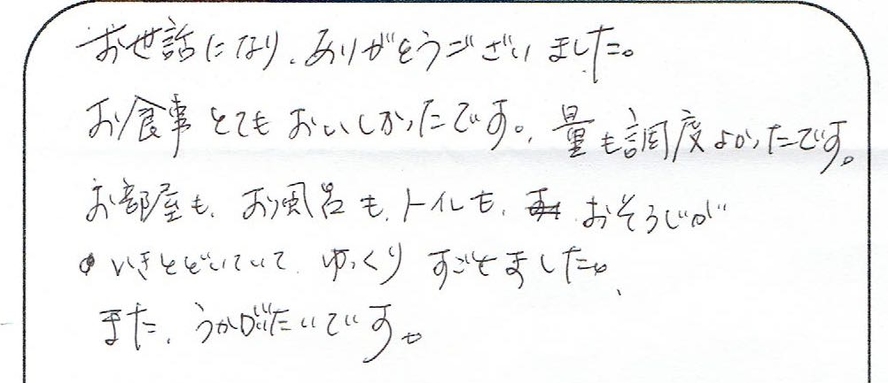 お世話になり、ありがとうございました。
お食事とてもおいしかったです。量も調度よかったです。
お部屋も、お風呂も、トイレも、おそうじが
いきとどいていて、ゆっくりすごせました。
また、うかがいたいです。